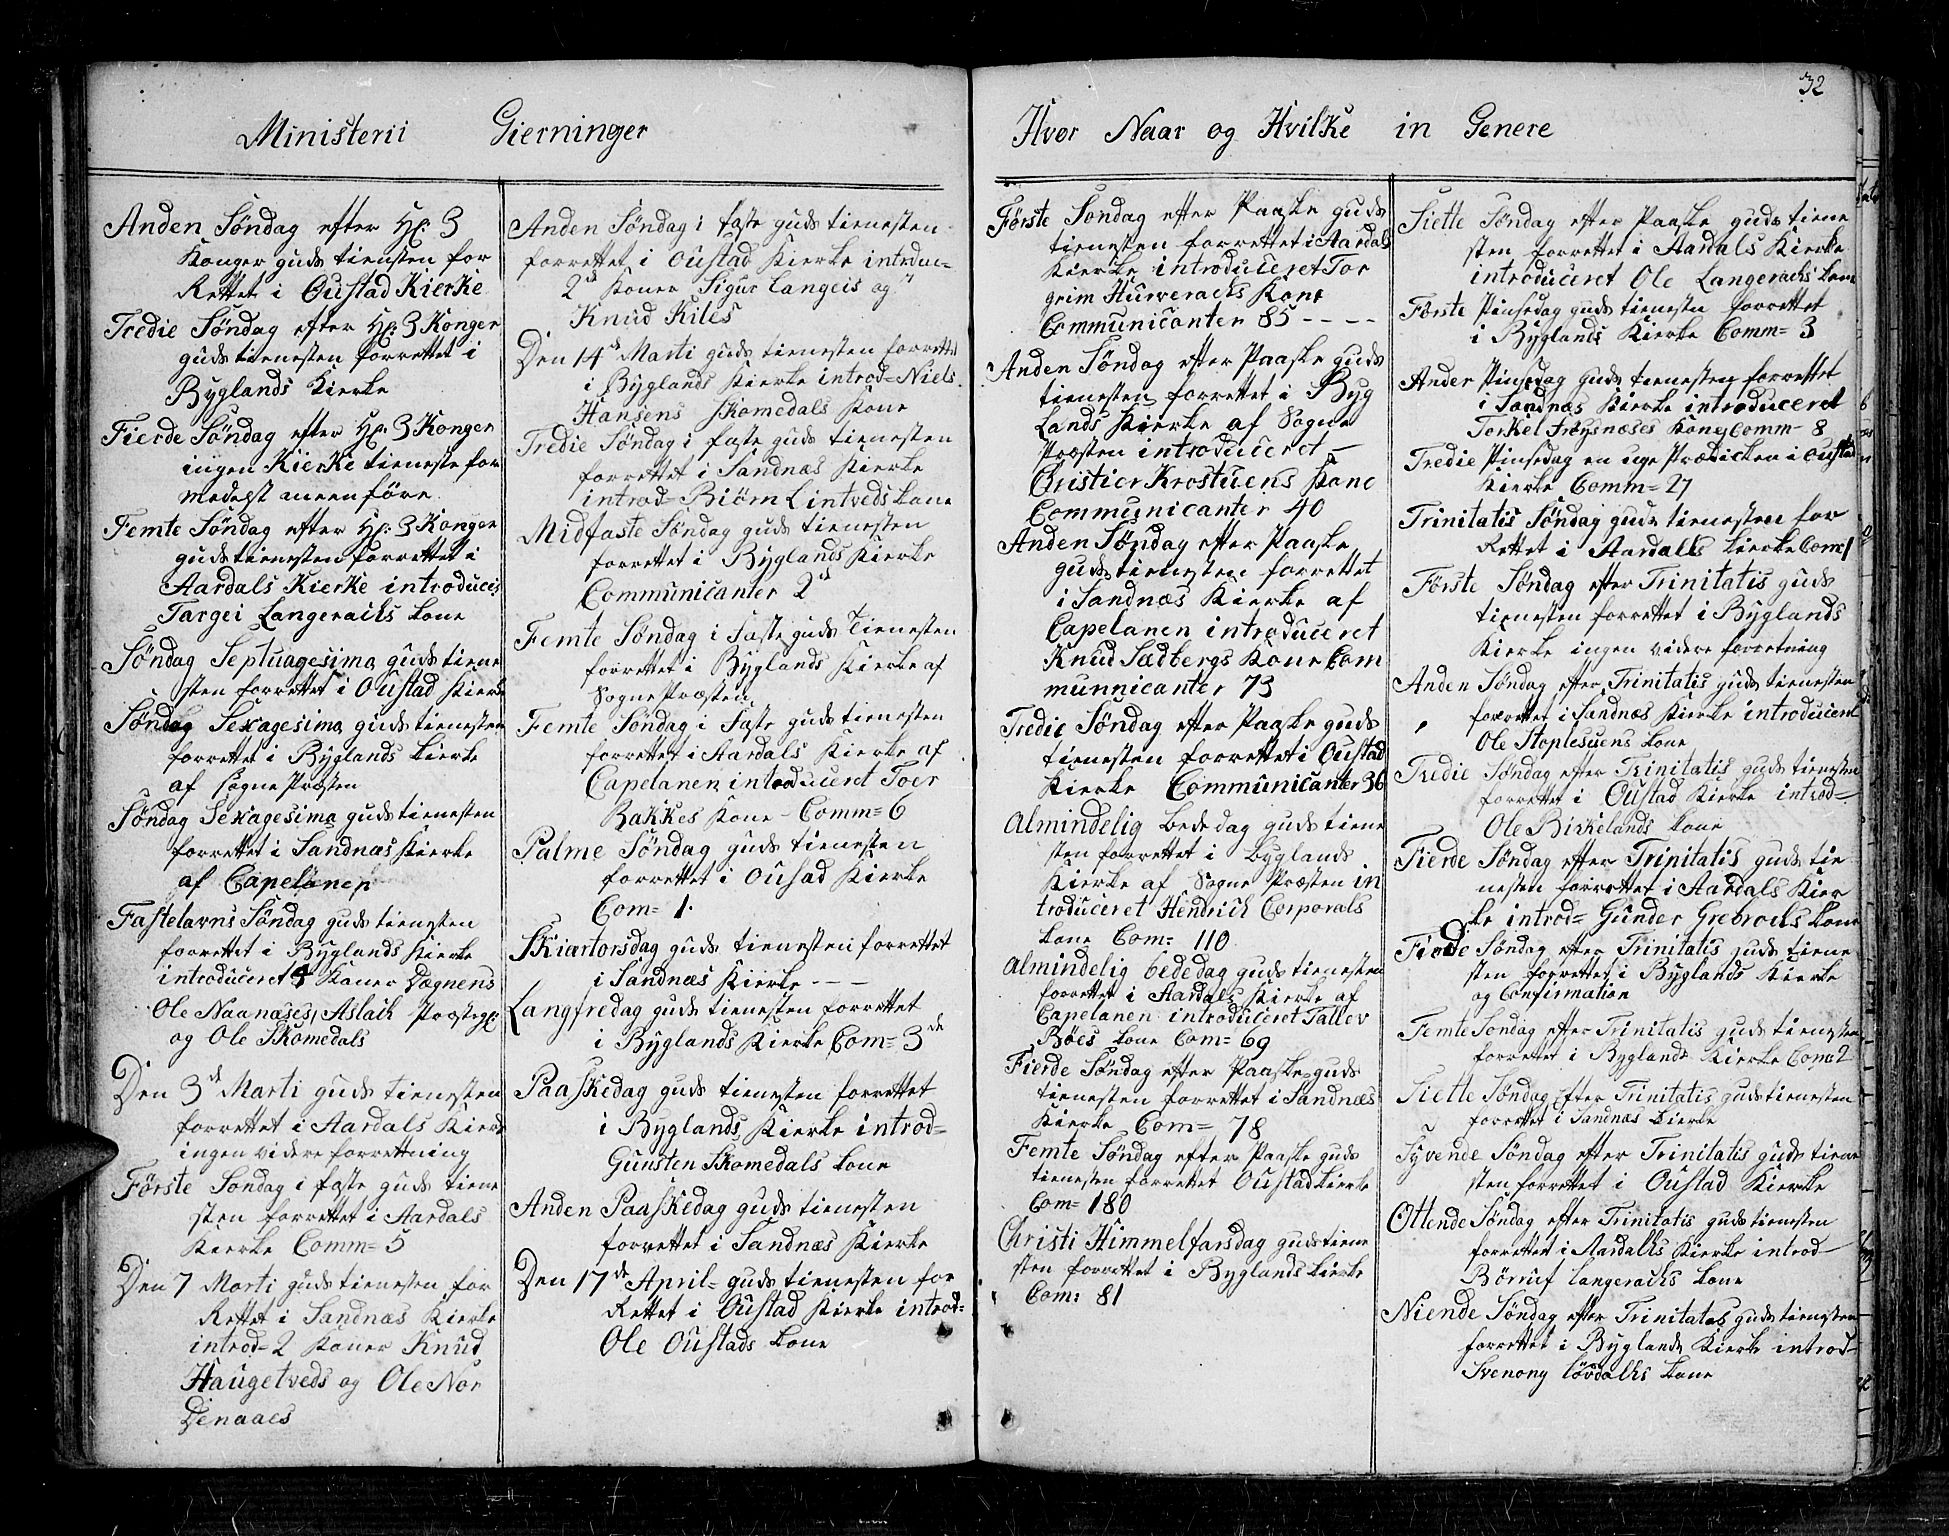 32
Ministerii Gierninger
Hvor Naar og Hvilke in Genere
Anden Søndag efter Hp: 3
Konger guds tiensten for
Rettet i Oustad Kierke
Tredie Søndag efter Hp: 3 Konger
guds tienesten forrettet i
Byglands Kierke
Fierde Søndag efter Hp: 3 Konger
ingen Kierke tieneste for
medelst meenføre
Femte Søndag efter Hp: 3 Konger
guds tienesten forrettet i
Aardals Kierke introduceis
Targei Langeracks Kone
Søndag Septuagesima guds tiene
sten forrettet i Oustad Kierke
Søndag Sexagesima guds tienesten
forrettet i Byglands Kierke
af Sogne Præsten
Søndag Sexagesima guds tienesten
forrettet i Sandnæs Kierke
af Capelanen
Fastelavns Søndag guds tienesten
forrettet i Byglands Kierke
introduceret 4 Koner Dægnens
Ole Naanæses, Aslach Præstegr:
og Ole Skomedals
Den 3d Marti guds tienesten
forrettet i Aardals Kierke
ingen videre forrettning
Første Søndag i faste guds tiene
sten forrettet i Aardals
Kierke Comm= 5
Den 7 Marti guds tienesten for
Rettet i Sandnæs Kierke
introd= 2 Koner Knud
Haugetveds og Ole Nor
Denaaes
Anden Søndag i faste guds tienesten
forrettet i Oustad Kierke introdu=
2de Koner Sigur Langeis og
Knud Kiles
Den 14de Marti guds tienesten forrettet
i Byglands Kierke introd= Niels
Hansens Skomedals Kone
Tredie Søndag i faste guds tienesten
forrettet i Sandnæs Kierke
introd= Biörn Lintveds Kone
Midfaste Søndag guds tienesten
forrettet i Byglands Kierke
Communicanter 2de
Femte Søndag i Faste guds Tienesten
forrettet i Byglands Kierke af
Sogne Præsten
Femte Søndag i Faste guds tienesten
forrettet i Aardals Kierke af
Capelanen introduceret Toer
Bakkes Kone - Comm= 6
Palme Søndag guds tienesten
forrettet i Ousad Kierke
Com= 1.
Skiærtorsdag guds tienesten forrettet
i Sandnæs Kierke - - -
Langfredag guds tienesten forrettet
i Byglands Kierke Com= 3de
Paaskedag guds tienesten forrettet
i Byglands Kierke introd=
Gunsten Skomedals Kone
Anden Paaskedag guds tienesten
forrettet i Sandnæs Kierke
Den 17de April= guds tienesten for
Rettet i Oustad Kierke introd=
Ole Oustads Kone
Første Søndag efter Paaske guds
tienesten forrettet i Aardals
Kierke introduceret Tor
grim Hurveracks Kone
Communicanter 85 - - - -
Anden Søndag efter Paaske guds
tienesten forrettet i Byg
Lands Kierke af Sogne
Præsten introduceret -
Christier Krostuens Kone
Communicanter 40
Anden Søndag efter Paaske
guds tienesten forrettet
i Sandnæs Kierke af
Capelanen introduceret
Knud Sædbergs Kone Com
municanter 73
Tredie Søndag efter Paaske guds
tienesten forrettet i Oustad
Kierke Communicanter 36
Almindelig bededag guds tiene
sten forrettet i byglands
Kierke af Sogne Præsten in
troduceret Hendrich Corporals
Kone Com= 110
Almindelig bededag guds tienesten
forrettet i Aardals Kierke af
Capelanen introduceret Tallev
Böes Kone Com= 69
Fierde Søndag efter Paaske guds
tienesten forrettet i Sandnæs
Kierke Com= 78
Femte Søndag efter Paaske guds
tienesten forrettet Oustad Kierke
Com= 180
Christi Himmelfarsdag guds tiene
sten forrettet i Byglands Kierke
Com: 81
Siette Søndag efter Paaske guds tiene
sten forrettet i Aardals Kierke
introduceret Ole Langerachs Kone
Første Pinsedag guds tienesten forrettet
i Byglands Kierke Comm= 3
Anden Pinsedag guds tienesten forrettet
i Sandnæs Kierke introduceret
Torkel Frøysnæses Kone Comm= 8
Tredie Pinsedag en uge Prædicken i Oustad
Kierke Comm= 27
Trinitatis Søndag guds tienesten for
Rettet i Aardalls Kierke Com: 1
Første Søndag efter Trinitatis guds
tienesten forrettet i Byglands
Kierke ingen videre forretning
Anden Søndag efter Trinitatis guds tienesten
forrettet i Sandnæs Kierke introduceret
Ole Stoplesuens Kone
Tredie Søndag efter Trinitatis guds tienesten
forrettet i Oustad Kierke introd=
Ole Birkelands Kone
Fierde Søndag efter Trinitatis guds tie
nesten forrettet i Aardals Kier
ke introd= Gunder Grebrocks Kone
Fierde Søndag efter Trinitatis guds tiene
sten forrettet i Byglands Kierke
og Confirmation
Femte Søndag efter Trinitatis guds tienesten
forrettet i Byglands Kierke Com: 2
Siette Søndag Efter Trinitatis guds tienesten
forrettet i Sandnæs Kierke
Syvende Søndag efter Trinitatis guds tiene
sten forrettet i Oustad Kierke
Ottende Søndag efter Trinitatis guds tienesten
forrettet i Aardalls Kierke introd=
Børruf Langerachs Kone
Niende Søndag efter Trinitatas guds tienesten
forrettet i Byglands Kierke introd=
Svenong Lövdalls Kone